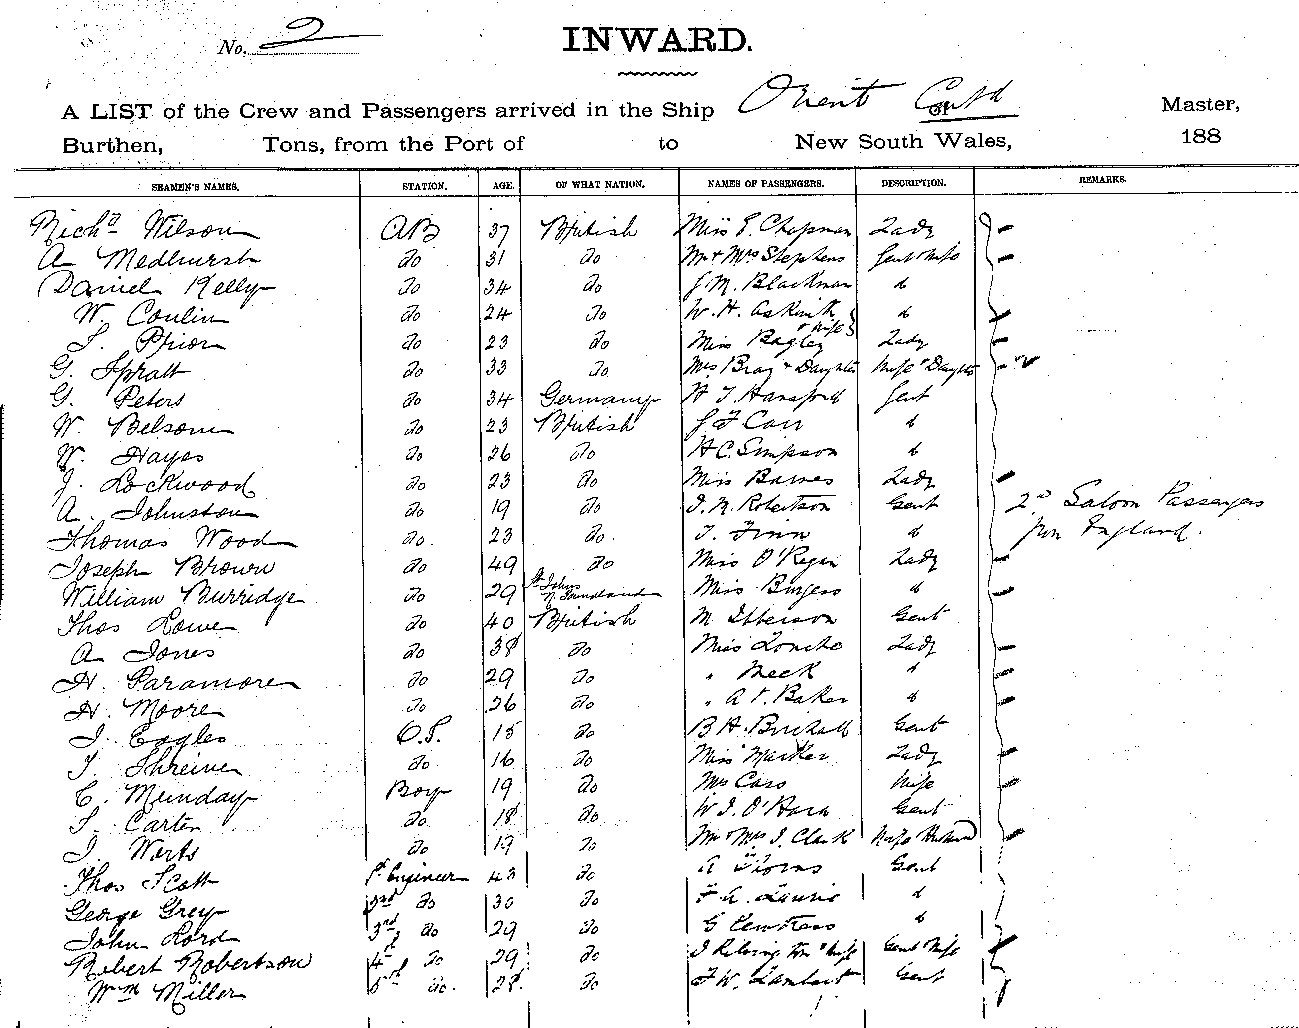 No. 2
INWARD.
A LIST of the Crew and Passengers arrived in the Ship Orient Contd of Master,
Burthen, Tons, from the Port of to New South Wales, 188
SEAMEN'S NAMES. STATION. AGE. OF WHAT NATION. NAMES OF PASSENGERS. DESCRIPTION. REMARKS.
Richd Wilson AB 37 British Miss E. Chapman Lady
A Medhurst do 31 do Mr & Mrs Stephens Gent & Wife
Daniel Kelly do 34 do J. M. Blackman d
W. Conlin do 24 do W. H. & Wife d
S. Prior do 23 do Miss Bagley Lady
G. Spratt do 33 do Mrs Bray & Daughter Wife & Daughter
G. Peters do 34 Germany H T Hansford Gent
W. Belsom do 23 British J F Carr d
W. Hayes do 26 do H C. Simpson d
J. Lockwood do 23 do Miss Barnes Lady
A. Johnston do 19 do J. N. Robertson Gent 2nd Saloon Passengers
Thomas Wood do 23 do T. Finn d from England.
Joseph Brown do 49 do Miss O'Regan Lady
William Burridge do 29 St Johns Miss Burgess d
Thos Lowe do 40 British M. Ibberson Gent
A Jones do 38 do Miss Lady
H. Paramore do 29 do " Meek d
H. Moore do 26 do " A V. Baker d
J. Eagles O.S. 15 do B H. Birchall Gent
T. Shreive do 16 do Miss Marker Lady
C. Munday Boy 19 do Mrs Cass Wife
S. Carter do 18 do W J. O'Hara Gent
J. Werts do 19 do Mr & Mrs J. Clark Wife Husband
Thos Scott 1st Engineer 43 do A Gent
George Grey 2nd do 30 do F. A. Laurie d
John Lord 3rd do 29 do G d
Robert Robertson 4th do 29 do J & Wife Gent & Wife
Wm Miller 5th do. 28 do F W. Lambert Gent